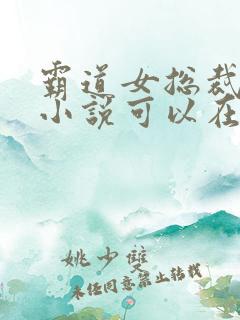 霸道女总裁
小说可以在
姚少双
未经同意禁止转载